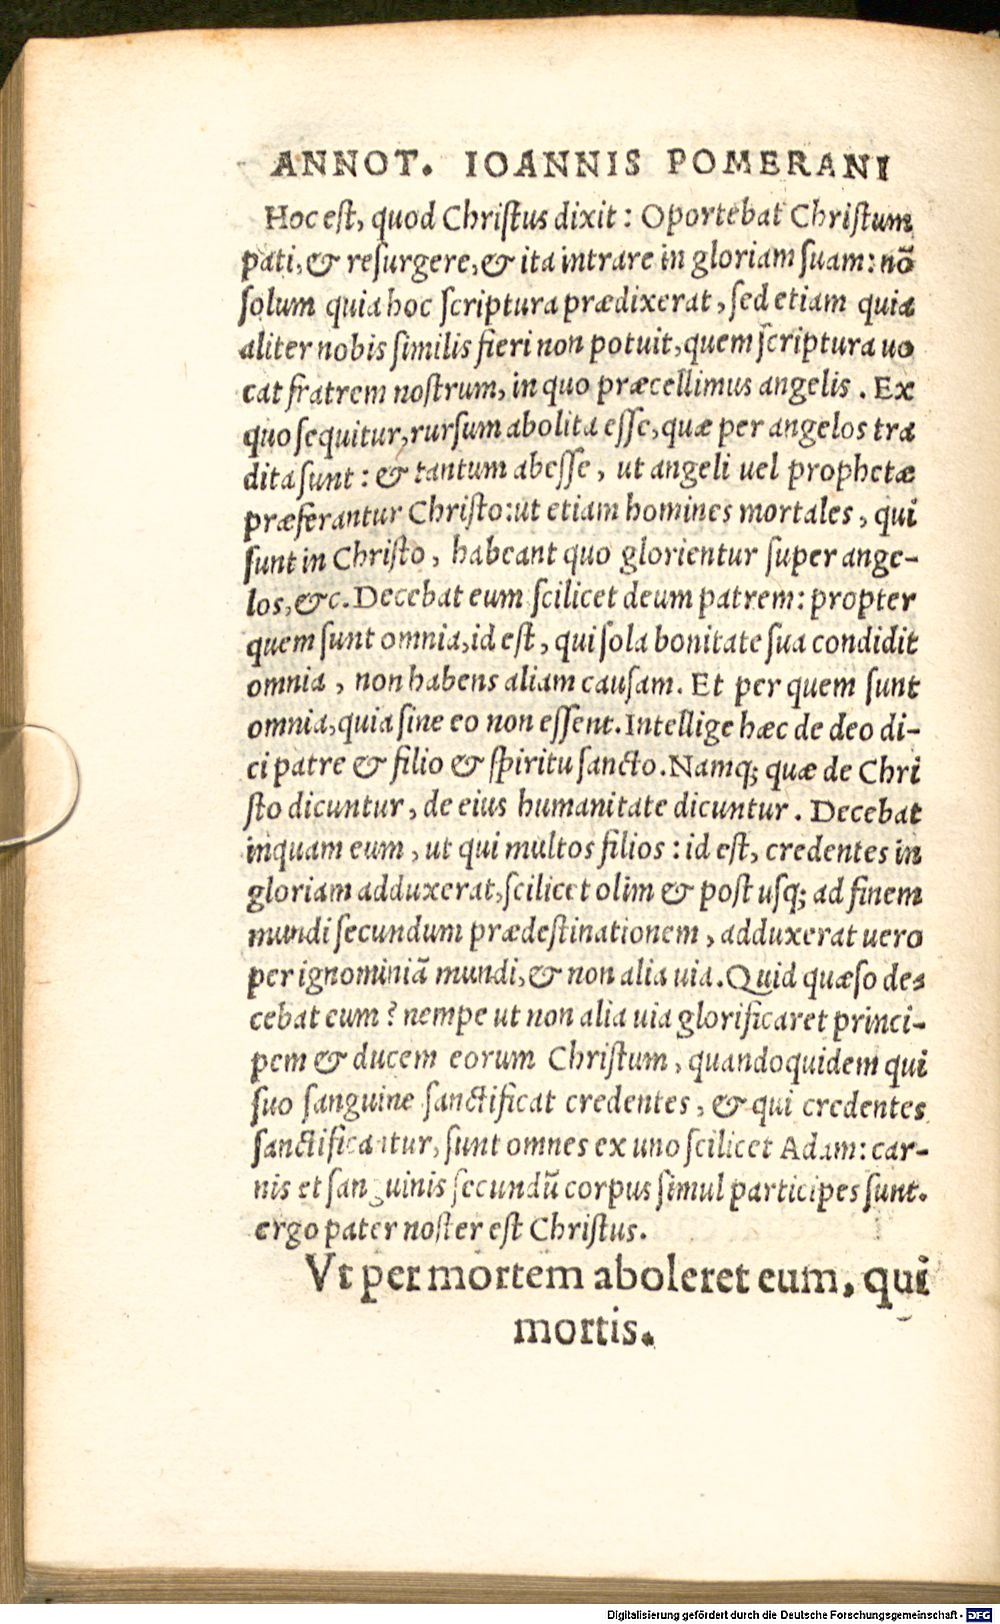 ANNOT. IOANNIS POMERANI
Hoc est, quod Christus dixit: Oportebat Christum
pati, & resurgere, & ita intrare in gloriam suam: nõ
solum quia hoc scriptura prædixerat, sed etiam quia
aliter nobis similis fieri non potuit, quem scriptura uo
cat fratrem nostrum, in quo præcellimus angelis. Ex
quo sequitur, rursum abolita esse, quæ per angelos tra
dita sunt: & tantum abesse, ut angeli uel prophetæ
præferantur Christo: ut etiam homines mortales, qui
sunt in Christo, habeant quo glorientur super ange-
los, &c. Decebat eum scilicet deum patrem: propter
quem sunt omnia, id est, qui sola bonitate sua condidit
omnia, non habens aliam causam. Et per quem sunt
omnia, quia sine eo non essent. Intellige hæc de deo di-
ci patre & filio & spiritu sancto. Namq; quæ de Chri
sto dicuntur, de eius humanitate dicuntur. Decebat
inquam eum, ut qui multos filios: id est, credentes in
gloriam adduxerat, scilicet olim & post usq; ad finem
mundi secundum prædestinationem, adduxerat uero
per ignominiã mundi, & non alia uia. Quid quæso de-
cebat eum? nempe ut non alia uia glorificaret princi-
pem & ducem eorum Christum, quandoquidem qui
suo sanguine sanctificat credentes, & qui credentes
sanctificantur, sunt omnes ex uno scilicet Adam: car-
nis et sanguinis secundũ corpus simul participes sunt.
ergo pater noster est Christus.
Vt per mortem aboleret eum, qui
mortis.
Digitalisierung gefördert durch die Deutsche Forschungsgemeinschaft - DFG